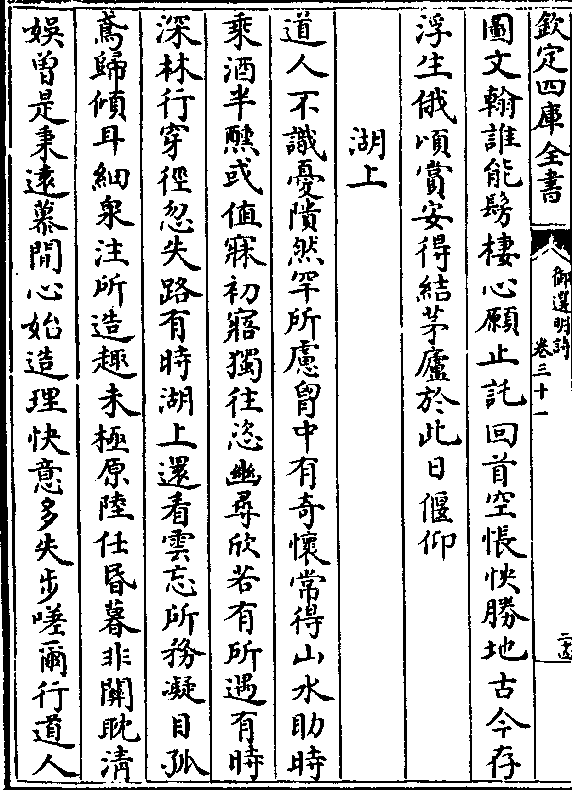 欽定四庫全書
御選明詩
卷三十一
二十四
圖文翰誰能髣棲心願止託回首空悵怏勝地古今存
浮生俄頃賞安得結茅廬於此日偃仰
湖上
道人不識憂隤然罕所慮胷中有奇懷常得山水助時
乘酒半醺或值寐初寤獨往恣幽尋欣若有所遇有時
深林行穿徑忽失路有時湖上還看雲忘所務凝目孤
鳶歸傾耳細泉注所造趣未極原陸任昏暮非關耽清
娛曽是秉遠慕閒心始造理快意多失步嗟爾行道人